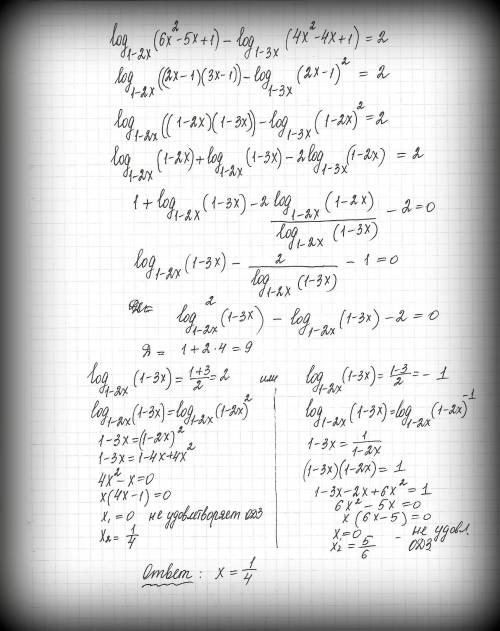 log₁₋₂ₓ(6x²-5x+1) - log₁₋₃ₓ(4x²-4x+1) = 2
log₁₋₂ₓ((2x-1)(3x-1)) - log₁₋₃ₓ(2x-1)² = 2
log₁₋₂ₓ((1-2x)(1-3x)) - log₁₋₃ₓ(1-2x)² = 2
log₁₋₂ₓ(1-2x) + log₁₋₂ₓ(1-3x) - 2log₁₋₃ₓ(1-2x) = 2
1 + log₁₋₂ₓ(1-3x) - 2 log₁₋₂ₓ(1-2x) / log₁₋₂ₓ(1-3x) - 2 = 0
log₁₋₂ₓ(1-3x) - 2 / log₁₋₂ₓ(1-3x) - 1 = 0
log²₁₋₂ₓ(1-3x) - log₁₋₂ₓ(1-3x) - 2 = 0
D = 1 + 2·4 = 9
log₁₋₂ₓ(1-3x) = (1+3)/2 = 2 или log₁₋₂ₓ(1-3x) = (1-3)/2 = -1
log₁₋₂ₓ(1-3x) = log₁₋₂ₓ(1-2x)²
1-3x = (1-2x)²
1-3x = 1-4x+4x²
4x²-x=0
x(4x-1)=0
x₁ = 0 не удовлтворяет ОДЗ
x₂ = 1/4
log₁₋₂ₓ(1-3x) = log₁₋₂ₓ(1-2x)⁻¹
1-3x = 1/(1-2x)
(1-3x)(1-2x) = 1
1-3x-2x+6x² = 1
6x²-5x=0
x(6x-5)=0
x₁=0
x₂ = 5/6 - не удовл. ОДЗ
Ответ: x = 1/4